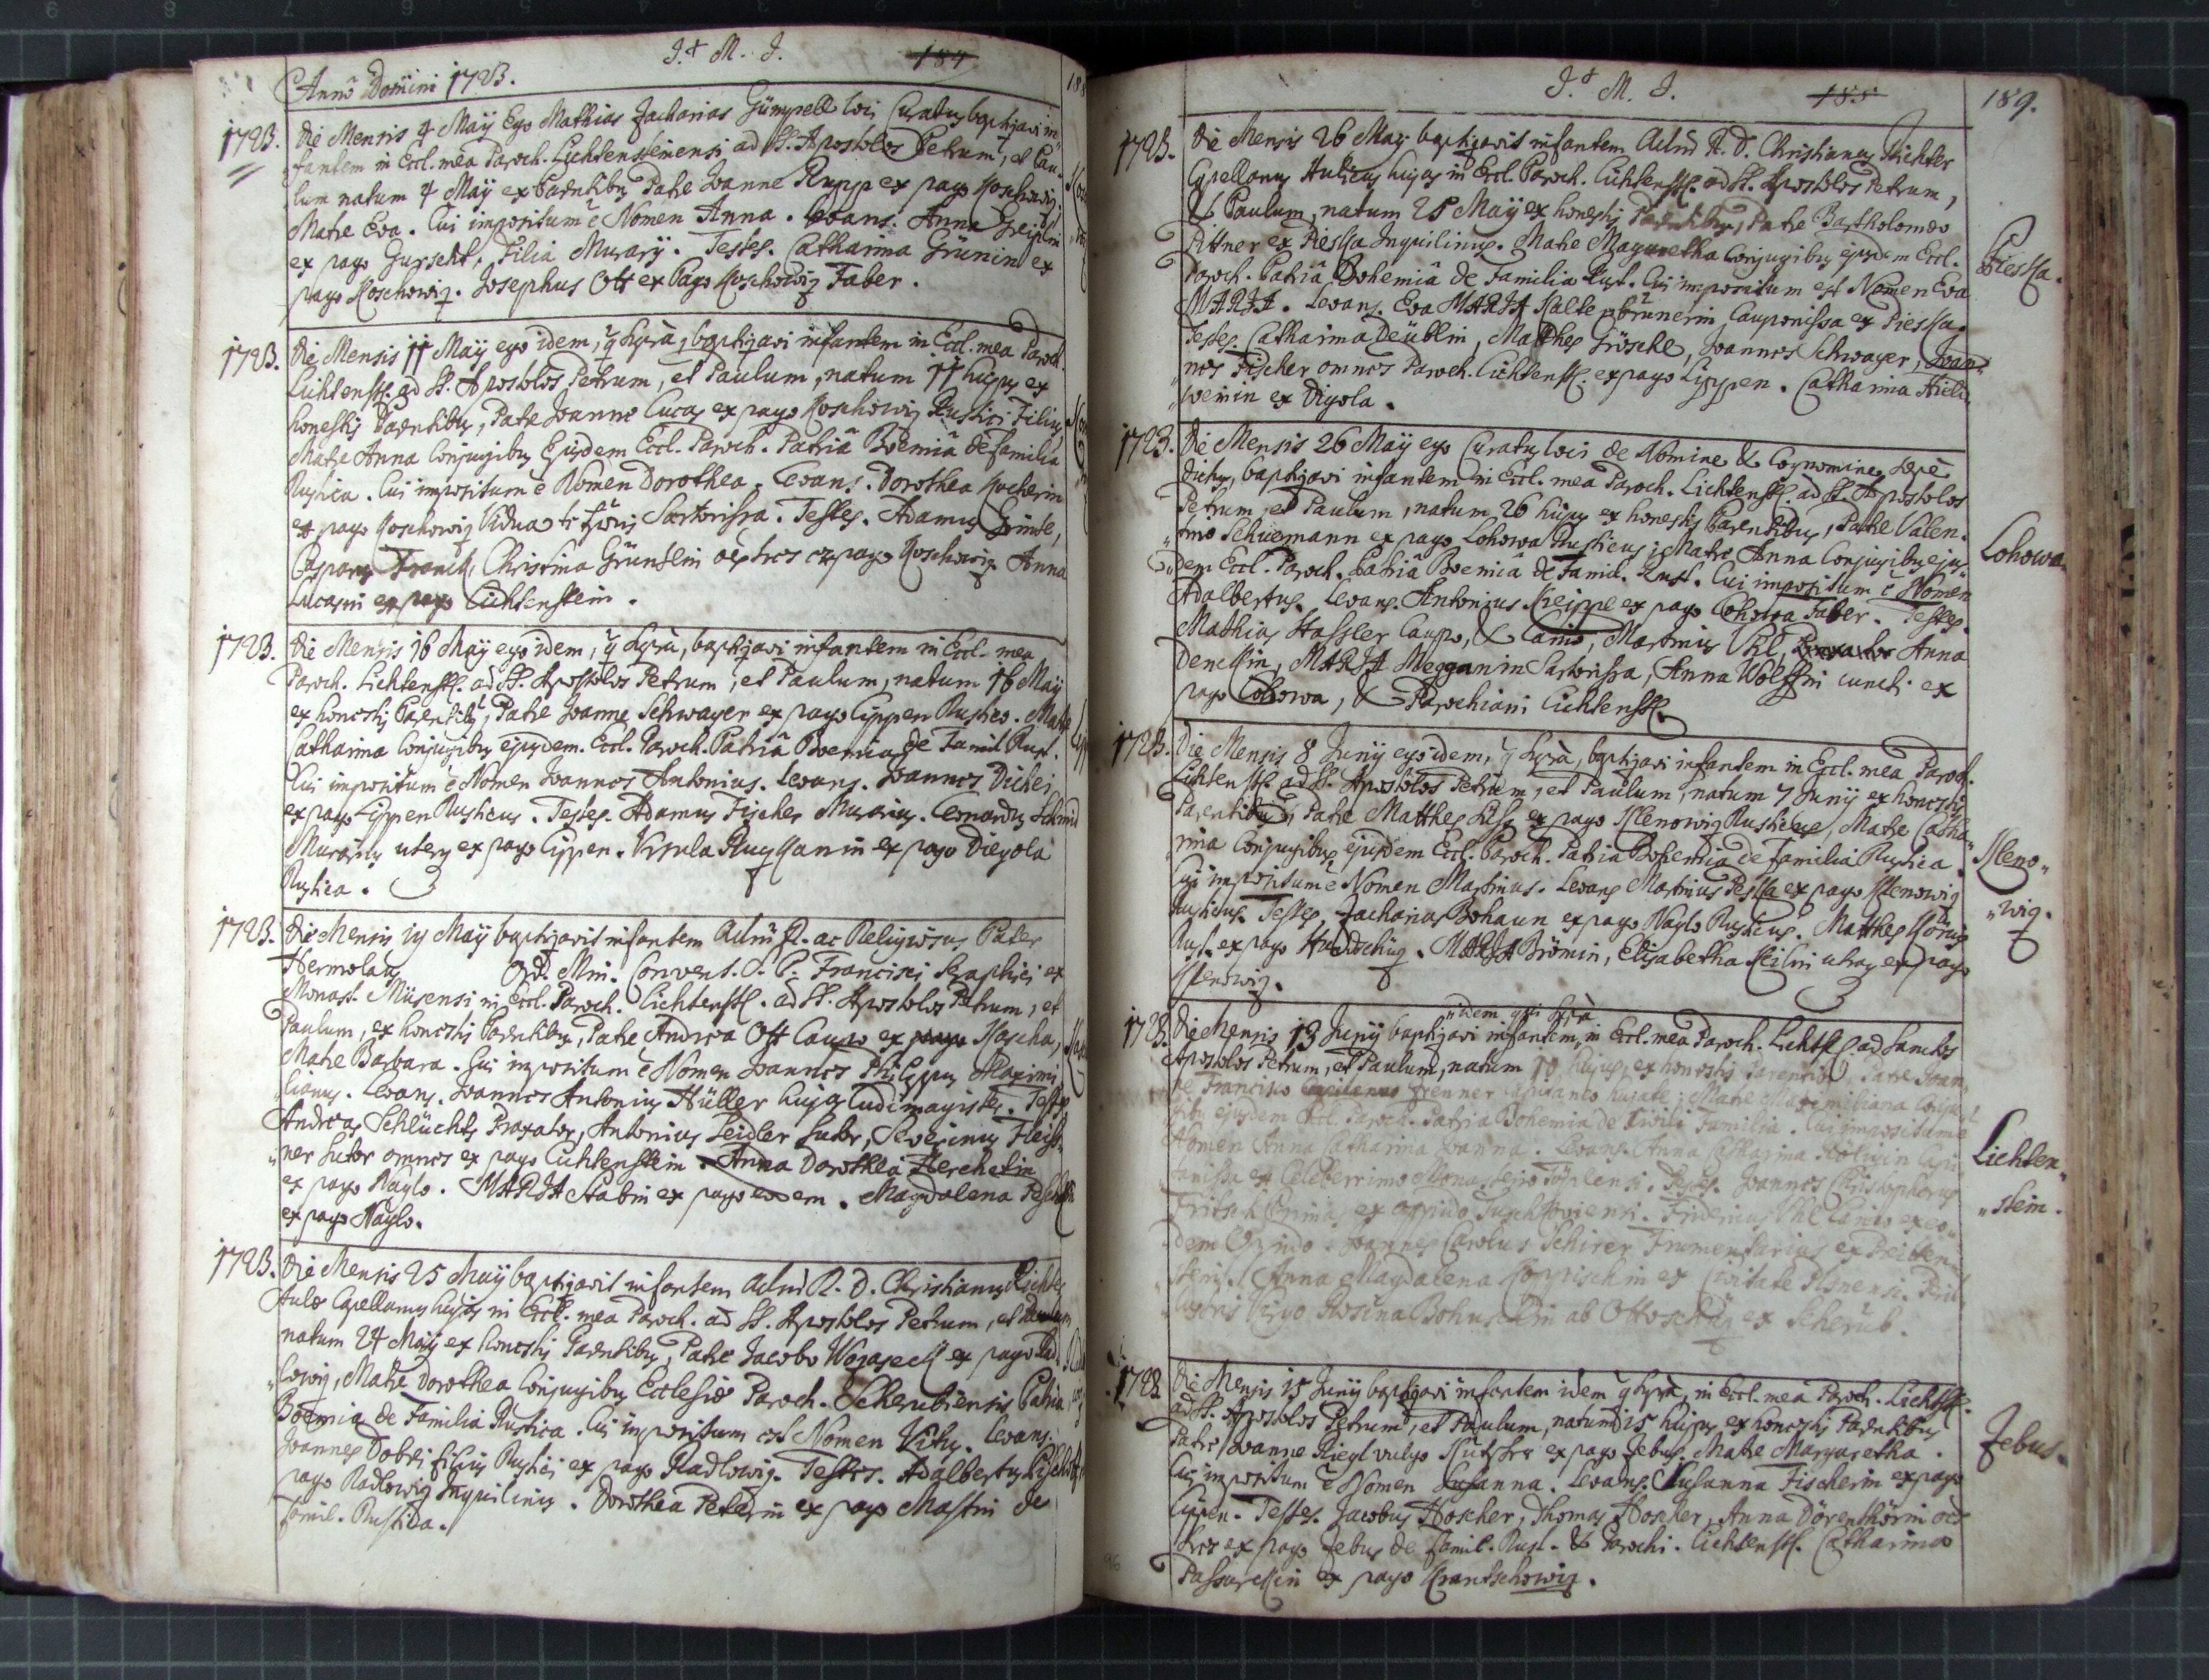 J. M. J.
184
188
Anno Domini 1723.
1723. Die Mensis 4 Maÿ Ego Mathias Zacharias Gümpell loci Curatus baptizavi in„
„fantem in Eccl. mea Paroch. Lichtensteinensi ad SS. Apostolos Petrum, et Pau„
lum natum 4 Maÿ ex Parentibus Patre Joanne Rupp ex pago Koschowiz.
Matre Eva. Cui impositum ē Nomen Anna. Levans. Anna
ex pago Gurscht, Filia Murarÿ. Testes. Catharina Grünin ex
pago Koschowiz. Josephus Ott ex Pago Koschowiz Faber.
1723. Die Mensis 11 Maÿ ego idem, q̄ supra, baptizavi infantem in Eccl. mea Paroch.
Lichtenst. ad SS. Apostolos Petrum, et Paulum, natum 11 hujus ex
honestis Parentibus, Patre Joanne Lucas ex pago Koschowiz Rustici Filius,
Matre Anna Conjugibus Ejusdem Eccl. Paroch. Patriâ Boemiâ de familia
Rustica. Cui impositum ē Nomen Dorothea. Levans. Dorothea Kocherin
ex pago Koschowiz Vidua Sartorissa. Testes. Adamus
Casparus Franck, Christina Gründlin ex pago Koschowiz Anna
Lucasin ex pago Lichtenstein.
1723. Die Mensis 16 Maÿ ego idem, q̄ supra, baptizavi infantem in Eccl. mea
Paroch. Lichtenst. ad SS. Apostolos Petrum, et Paulum, natum 16 Maÿ
ex honestis Parentibus, Patre Joanne Schwager ex pago Lippen Rustico. Matre
Catharina Conjugibus ejusdem. Eccl. Paroch. Patriâ Boemia de Famil. Rust.
Cui impositum ē Nomen Joannes Antonius. Levans. Joannes Dickei
ex pago Lippen Rusticus. Testes. Adamus Fischer Murarius. Leonardus Schmid
Murarius uterq ex pago Lippen. Ursula ex pago Diegola
Rustica.
1723. Die Mensis 19 Maÿ baptizavit infantem Adm R. ac Religiosus Pater
Hermolaus Ord. Min. Convent. S. P. Francisci Seraphici ex
Monast. Misensi in Eccl. Paroch. Lichtenst. ad SS. Apostolos Petrum, et
Paulum, ex honestis Parentibus, Patre Andrea Ott Caupo ex pago Hascha,
Matre Barbara. Cui impositum ē Nomen Joannes Philippus Maximi„
lianus. Levans. Joannes Antonius Hüller hujas Ludimagister. Testes
Andreas Schlüchts Braxator, Antonius Seidler Sutor, Severinus Fleiss„
„ner Sutor omnes ex pago Lichtenstein. Anna Dorothea Zerchelin
ex pago Naglo. MARIA Stabin ex pago eodem. Magdalena
ex pago Naglo.
1723. Die Mensis 25 Maÿ baptizavit infantem Adm R. D. Christianus Richter
Aulæ Capellanus hujas in Eccl. mea Paroch. ad SS. Apostolos Petrum, et Paulum,
natum 24 Maÿ ex honestis Parentibus, Patre Jacobo Wogaseck ex pago Rad„
„lowiz, Matre Dorothea Conjugibus Ecclesiæ Paroch. Scherubiensis Patria
Boemia de Familia Rustica. Cui impositum est Nomen Vitus. Levans.
Joannes Dobri filius Rustici ex pago Radlowiz. Testes. Adalbertus
pago Radlowiz Inquilinus. Dorothea Peterin ex pago Mastin de
famil. Rustica.
J. M. J.
185
189.
1723. Die Mensis 26 Maÿ baptizavit infantem Adm R. D. Christianus Richter
Capellanus Aulicus hujas in Eccl. Paroch. Lichtenst. ad SS. Apostolos Petrum,
& Paulum, natum 25 Maÿ ex honestis Parentibus, Patre Bartholomæo
Pittner ex Pieska Inquilinus. Matre Magaretha Conjugibus ejusdem Eccl.
Paroch. Patriâ Bohemiâ de Familia Rust. Cui impositum est Nomen Eva
MARIA. Levans. Eva MARIA Kaltenbrünerin Cauponissa ex Pieska.
Testes. Catharina Deüblin, Matthes Gröschl, Joannes Schwager, Joan„
„nes Fischer omnes Paroch. Lichtenst. ex pago Lippen. Catharina
„werin ex Digola.
Pieska.
1723. Die Mensis 26 Maÿ ego Curatus loci de Nomine & Cognomine sæpe
dictus, baptizavi infantem in Eccl. mea Paroch. Lichtenst. ad SS. Apostolos
Petrum, et Paulum, natum 26 hujus ex honestis Parentibus, Patre Valen„
„tino Schuemann ex pago Lohowa Rusticus; Matre Anna Conjugibus ejus„
„dem Eccl. Paroch. Patriâ Boemiâ de Famil. Rust. Cui impositum ē Nomen
Adalbertus. Levans. Antonius Kreippl ex pago Lohowa Faber. Testes.
Mathias Hassler Caupo, & Lanio, Martinus Uhl, Anna
Denckin, MARIA Megganin Sartorissa, Anna Wolffin cuncti ex
pago Lohowa, & Parochiani Lichtenst.
Lohowa
1723. Die Mensis 8 Junÿ ego idem, q̄ supra, baptizavi infantem in Eccl. mea Paroch.
Lichtenst. ad SS. Apostolos Petrum, et Paulum, natum 7 Junÿ ex honestis
Parentibus, Patre Matthes ex pago Klenowiz Rusticus, Matre Catha„
„rina Conjugibus ejusdem Eccl. Paroch. Patria Bohemia de familiâ Rustica.
Cui impositum ē Nomen Martinus. Levans Martinus Peska ex pago Klenowiz
Rusticus. Testes, Zacharias Bohaun ex pago Naglo Rusticus. Matthes König
Rust. ex pago Hundschüz. MARIA Brömin, Elisabetha Keilin utraq ex pago
Klenowiz.
Kleno„
„wiz.
„idem qui supra
1723. Die Mensis 13 Junÿ baptizavi infantem, in Eccl. mea Paroch. Lichtst. ad Sanctos
Apostolos Petrum, et Paulum, natum 10 hujus, ex honestis Parentibus, Patre Joan„
ne Francisco Brenner Capitaneo hujate; Matre Maximiliana Conju„
gibus ejusdem Eccl. Paroch. Patria Bohemia de Civili Familia. Cui impositum ē
Nomen Anna Catharina Joanna. Levans. Anna Catharina Capi„
tanissa ex Celeberrimo Monasterio Töplensi. Testes. Joannes Christophorus
Fritsch ex oppido Tuschkoviensi. Fridericus Uhl Lanio ex eo„
dem Oppido. Joannes Carolus Schirer Frumentarius ex
Anna Magdalena Koppischin ex Civitate Pilsnensi.
Virgo Rosina Bohuschin ab Ottoschüz ex Scherub.
Lichten„
„stein.
1723 Die Mensis 15 Junÿ baptizavi infantem idem q̄ supra, in Eccl. mea Paroch. Lichtst.
ad SS. Apostolos Petrum, et Paulum, natum 15 hujus ex honestis Parentibus
Patre Joanne Riegl vulgo ex pago Zebus. Matre Margaretha.
Cui impositum ē Nomen Susanna. Levans. Susanna Fischerin ex pago
Lippen. Testes. Jacobus Hoscher, Thomas Hoscher, Anna Dörenthörin
ex pago Zebus de famil. Rust. & Parochi. Lichtenst. Catharina
Passureckin ex pago Krantschowiz.
Zebus.
96